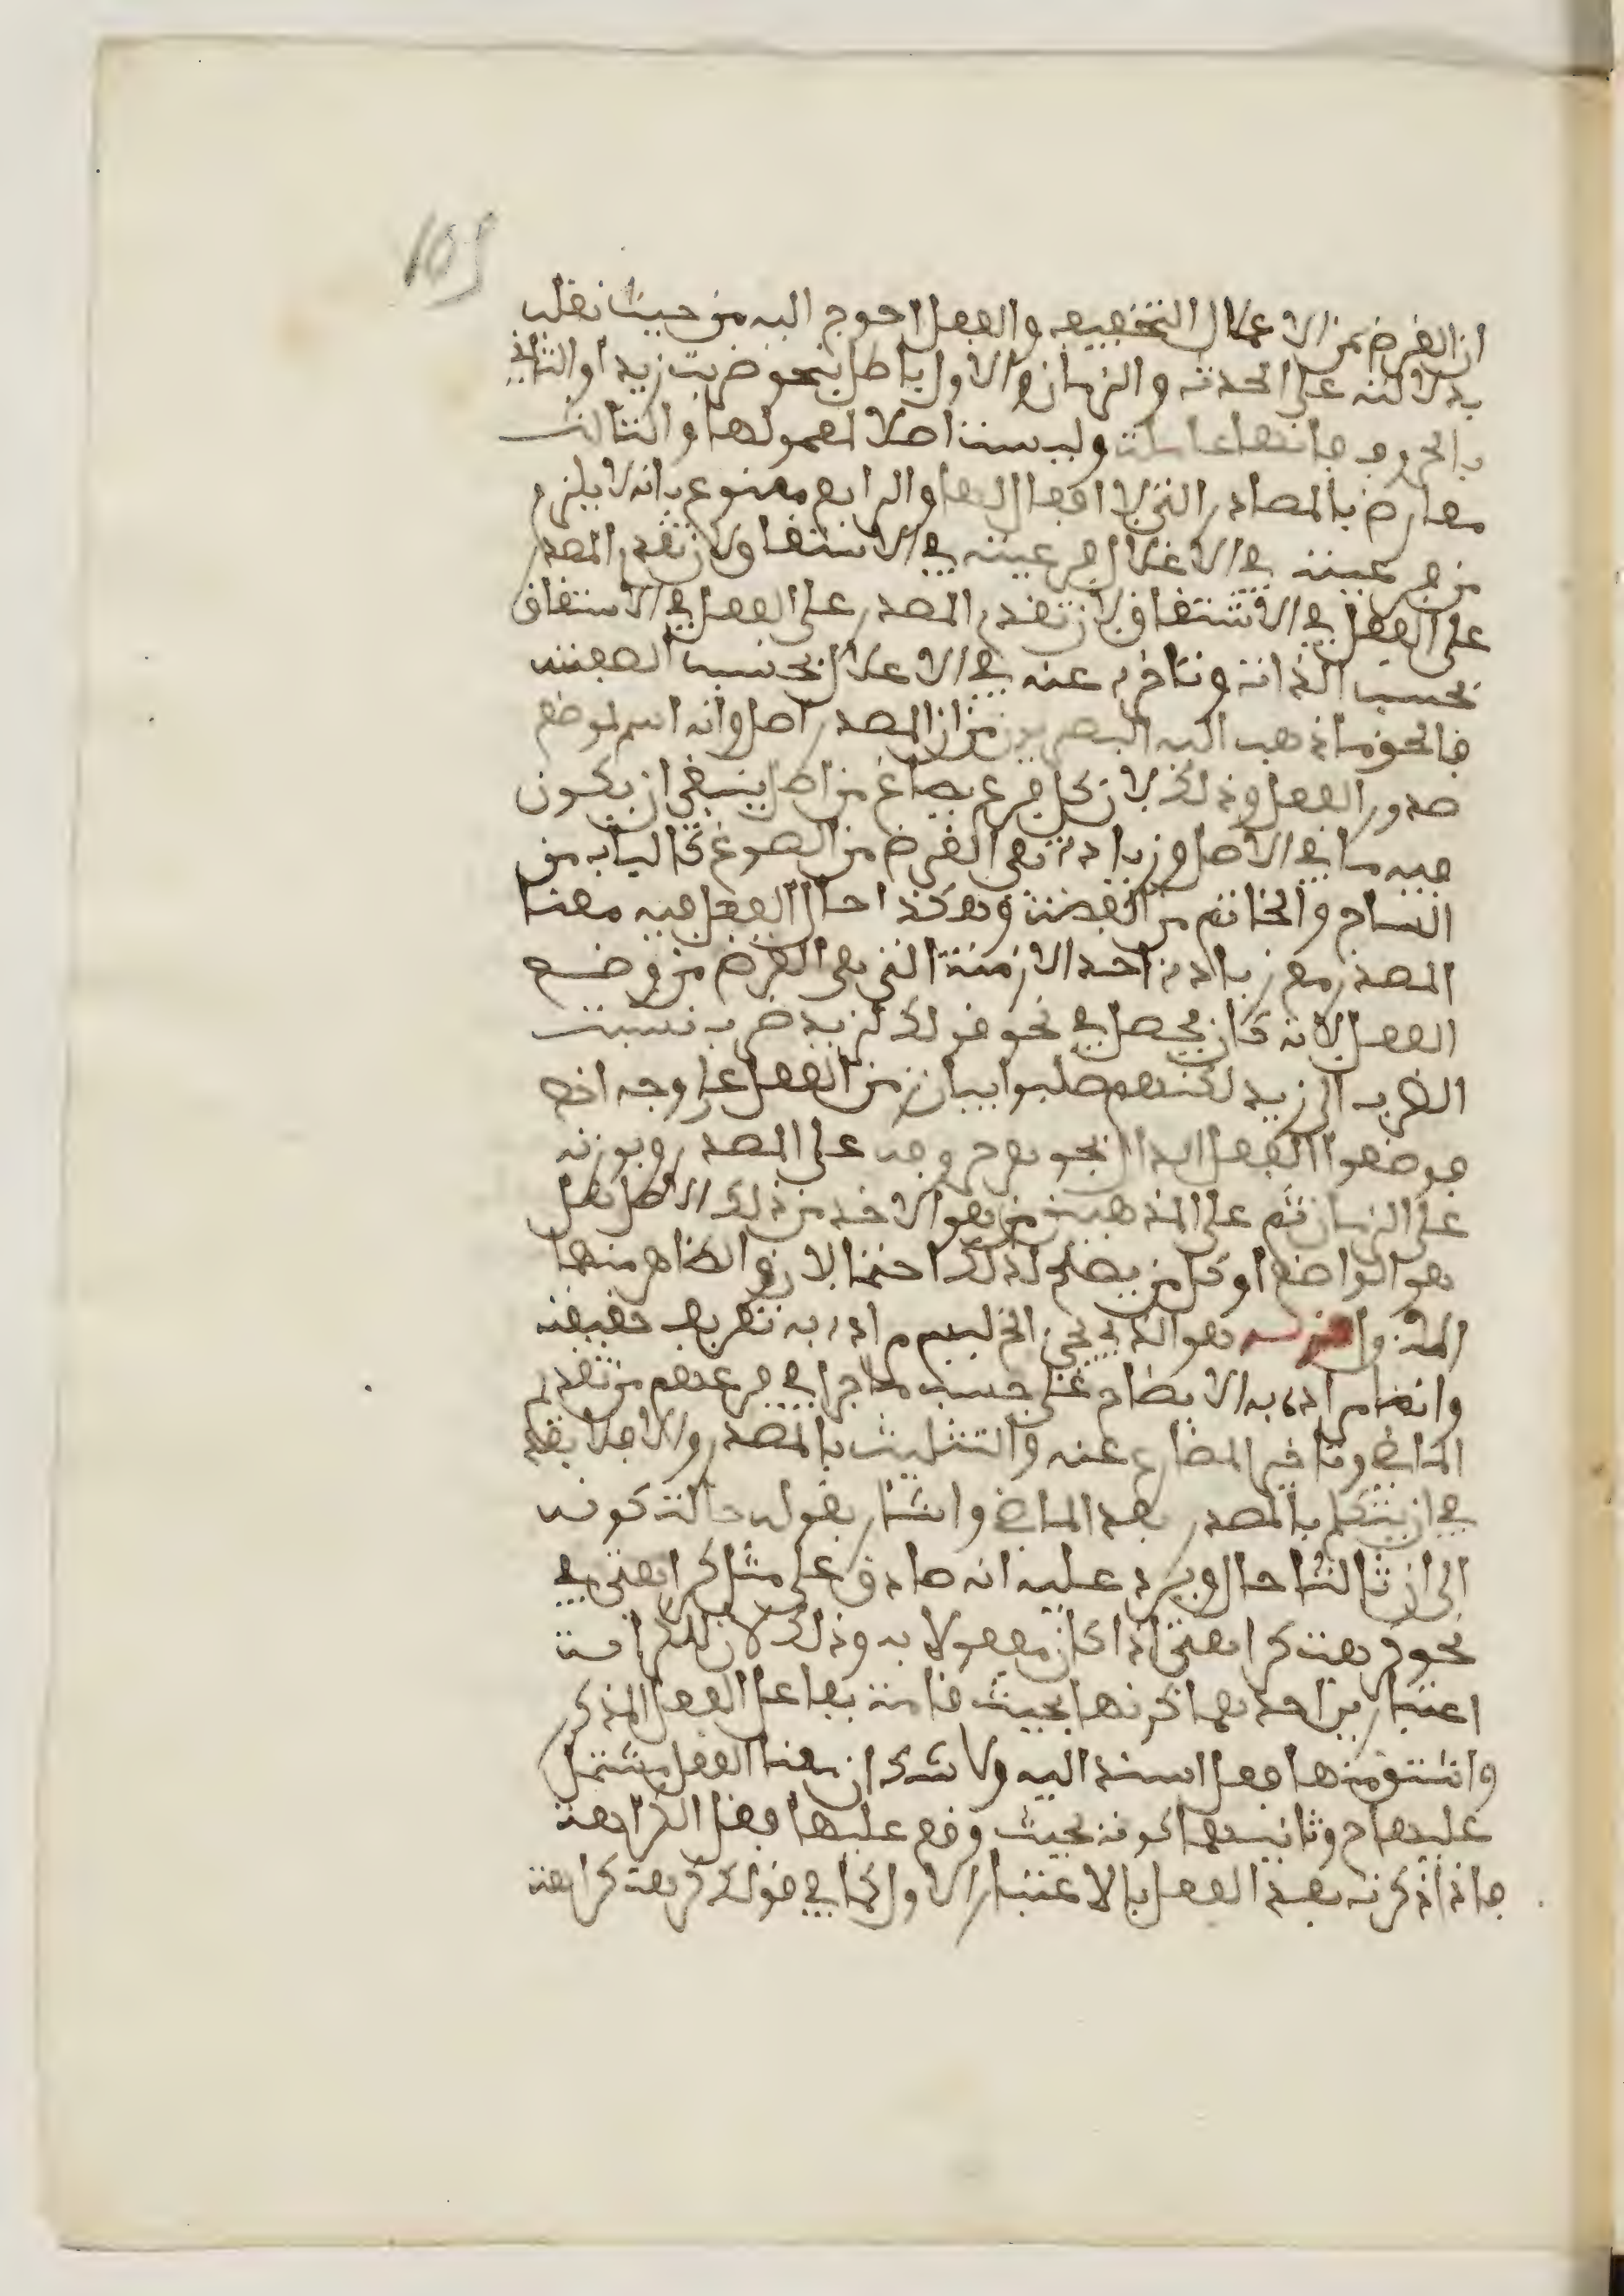 105
ان الغرض من الاعلال التخفيف والفعل احوج اليه من حيث ثقله
بدلالته على الحدث والزمان والاول باطل بنحو ضربت زيدا والثاني
بالحروف فانها عاملة وليست اصلا لمعمولها والثالث
معارض بالمصادر التي لا افعال لها والرابع ممنوع بانه لا يلزم
من فرعيته في الاعلال فرعيته في الاشتقاق ولان تقدم المصدر
على الفعل في الاشتقاق لان تقدم المصدر على الفعل في الاشتقاق
بحسب الذات وتاخره عنه في الاعلال بحسب الصفة
فالحق ما ذهب اليه البصريون من ان المصدر اصل وانه اسم لموضع
صدور الفعل وذلك لان كل فرع يصاغ من اصل ينبغي ان يكون
فيه ما في الاصل وزيادة هي الغرض من الصوغ كالباب من
الساج والخاتم من الفضة وهكذا حال الفعل فيه معنا
المصدر مع زيادة احد الازمنة التي هي الغرض من وضع
الفعل لانه كان يحصل في نحو قولك لزيد ضرب نسبة
الضرب الى زيد لكنهم طلبوا بيان زمن الفعل على وجه اخصر
فوضعوا الفعل الدال بجوهر حروفه على المصدر وبوزنه
على الزمان ثم على المذهبين من هو الاخذ من ذلك الاصل هل
هو الواضع او كل من يصلح لذلك احتمالان والظاهر منهما
الذي يجي الخ ليس مراده به تعريف حقيقة
وانما مراده به الانضاح على حسب ما جرا في فرعهم من تقديم
الماضي وتاخير المضارع عنه والتثليث بالمصدر والا فلا بعد
في ان يتكلم بالمصدر بعد الماضي واشار بقوله حالة كونه
الى ان ثالثا حال ويرد عليه انه صادق على مثل كراهتي في
نحو كرهت كراهتي اذا كان مفعولا به وذلك لان للكراهة
اعتبارين احدهما كونها بحيث قامت بفاعل الفعل المذكور
واشتق منها فعل اسند اليه ولا شك ان معنا الفعل مشتمل
عليها ح وثانيهما كونه بحيث وقع عليها فعل الكراهة
فاذا ذكرته بعد الفعل بالاعتبار الاول كما في قولك كرهت كراهة